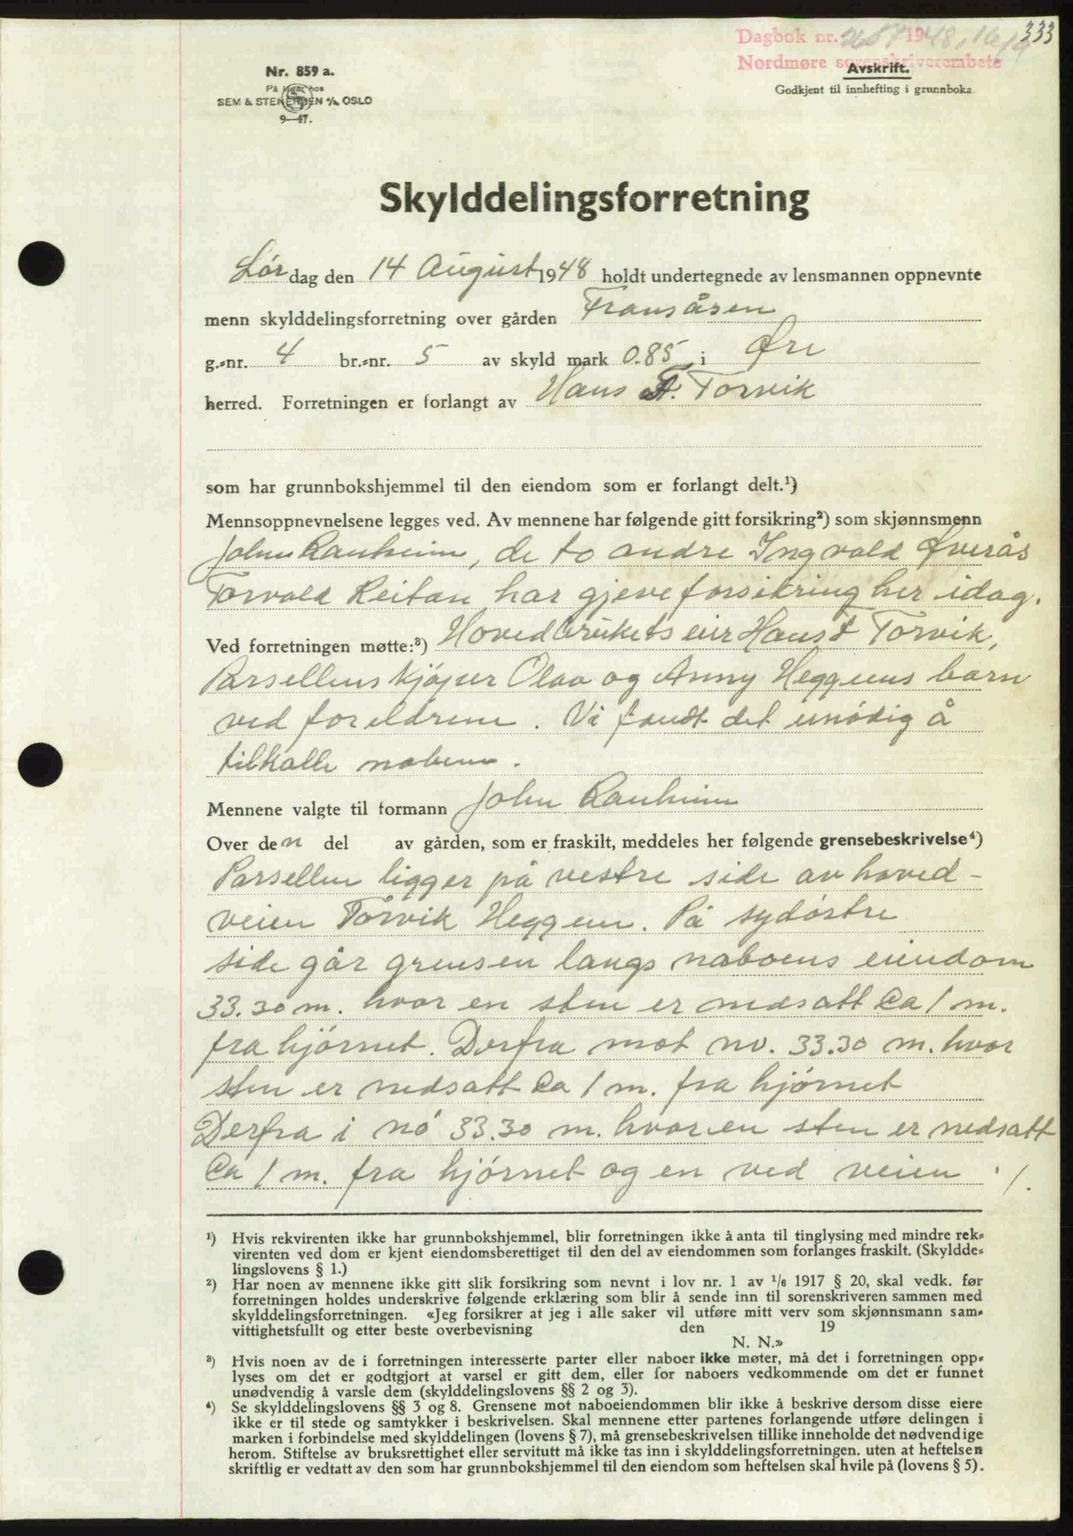 333
Dagbok nr. 2057 1948, 16/9
Nordmøre sorenskriverembete
Avskrift.
Godkjent til innhefting i grunnboka.
Nr. 859 a.
På lager hos
SEM & STENERSEN A/S, OSLO
9—47.
Skylddelingsforretning
Lørdag den 14 August 1948 holdt undertegnede av lensmannen oppnevnte
menn skylddelingsforretning over gården Fransåsen
g.-nr. 4 br.-nr. 5 av skyld mark 0.85 i Øre
herred. Forretningen er forlangt av Hans A. Torvik
som har grunnbokshjemmel til den eiendom som er forlangt delt.¹)
Mennsoppnevnelsene legges ved. Av mennene har følgende gitt forsikring²) som skjønnsmenn
John Ranheim, de to andre Ingvald Øverås
Torvald Reitan har gjeve forsikring her idag.
Ved forretningen møtte:³) Hovedbrukets eier Hans Torvik,
Parsellens kjøper Olav og Anny Heggems barn
ved foreldrene. Vi fandt det unødig å
tilkalle naboene.
Mennene valgte til formann John Ranheim
Over den del av gården, som er fraskilt, meddeles her følgende grensebeskrivelse⁴)
Parsellen ligger på vestre side av hoved-
veien Torvik Heggem. På sydøstre
side går grensen langs naboens eiendom
33.30 m. hvor en sten er nedsatt ca 1 m.
fra hjørnet. Derfra mot nv. 33.30 m. hvor
sten er nedsatt ca 1 m. fra hjørnet
Derfra i nó 33.30 m. hvor en sten er nedsatt
ca 1 m. fra hjørnet og en ved veien ./.
¹) Hvis rekvirenten ikke har grunnbokshjemmel, blir forretningen ikke å anta til tinglysing med mindre rek-
virenten ved dom er kjent eiendomsberettiget til den del av eiendommen som forlanges fraskilt. (Skyldde-
lingslovens § 1.)
²) Har noen av mennene ikke gitt slik forsikring som nevnt i lov nr. 1 av 1/6 1917 § 20, skal vedk. før
forretningen holdes underskrive følgende erklæring som blir å sende inn til sorenskriveren sammen med
skylddelingsforretningen. «Jeg forsikrer at jeg i alle saker vil utføre mitt verv som skjønnsmann sam-
vittighetsfullt og etter beste overbevisning den 19
N. N.»
³) Hvis noen av de i forretningen interesserte parter eller naboer ikke møter, må det i forretningen opp-
lyses om det er godtgjort at varsel er gitt dem, eller for naboers vedkommende om det er funnet
unødvendig å varsle dem (skylddelingslovens §§ 2 og 3).
⁴) Se skylddelingslovens §§ 3 og 8. Grensene mot naboeiendommen blir ikke å beskrive dersom disse eiere
ikke er til stede og samtykker i beskrivelsen. Skal mennene etter partenes forlangende utføre delingen i
marken i forbindelse med skylddelingen (lovens § 7), må grensebeskrivelsen tillike inneholde det nødvendige
herom. Stiftelse av bruksrettighet eller servitutt må ikke tas inn i skylddelingsforretningen. uten at heftelsen
skriftlig er vedtatt av den som har grunnbokshjemmel til den eiendom som heftelsen skal hvile på (lovens § 5).